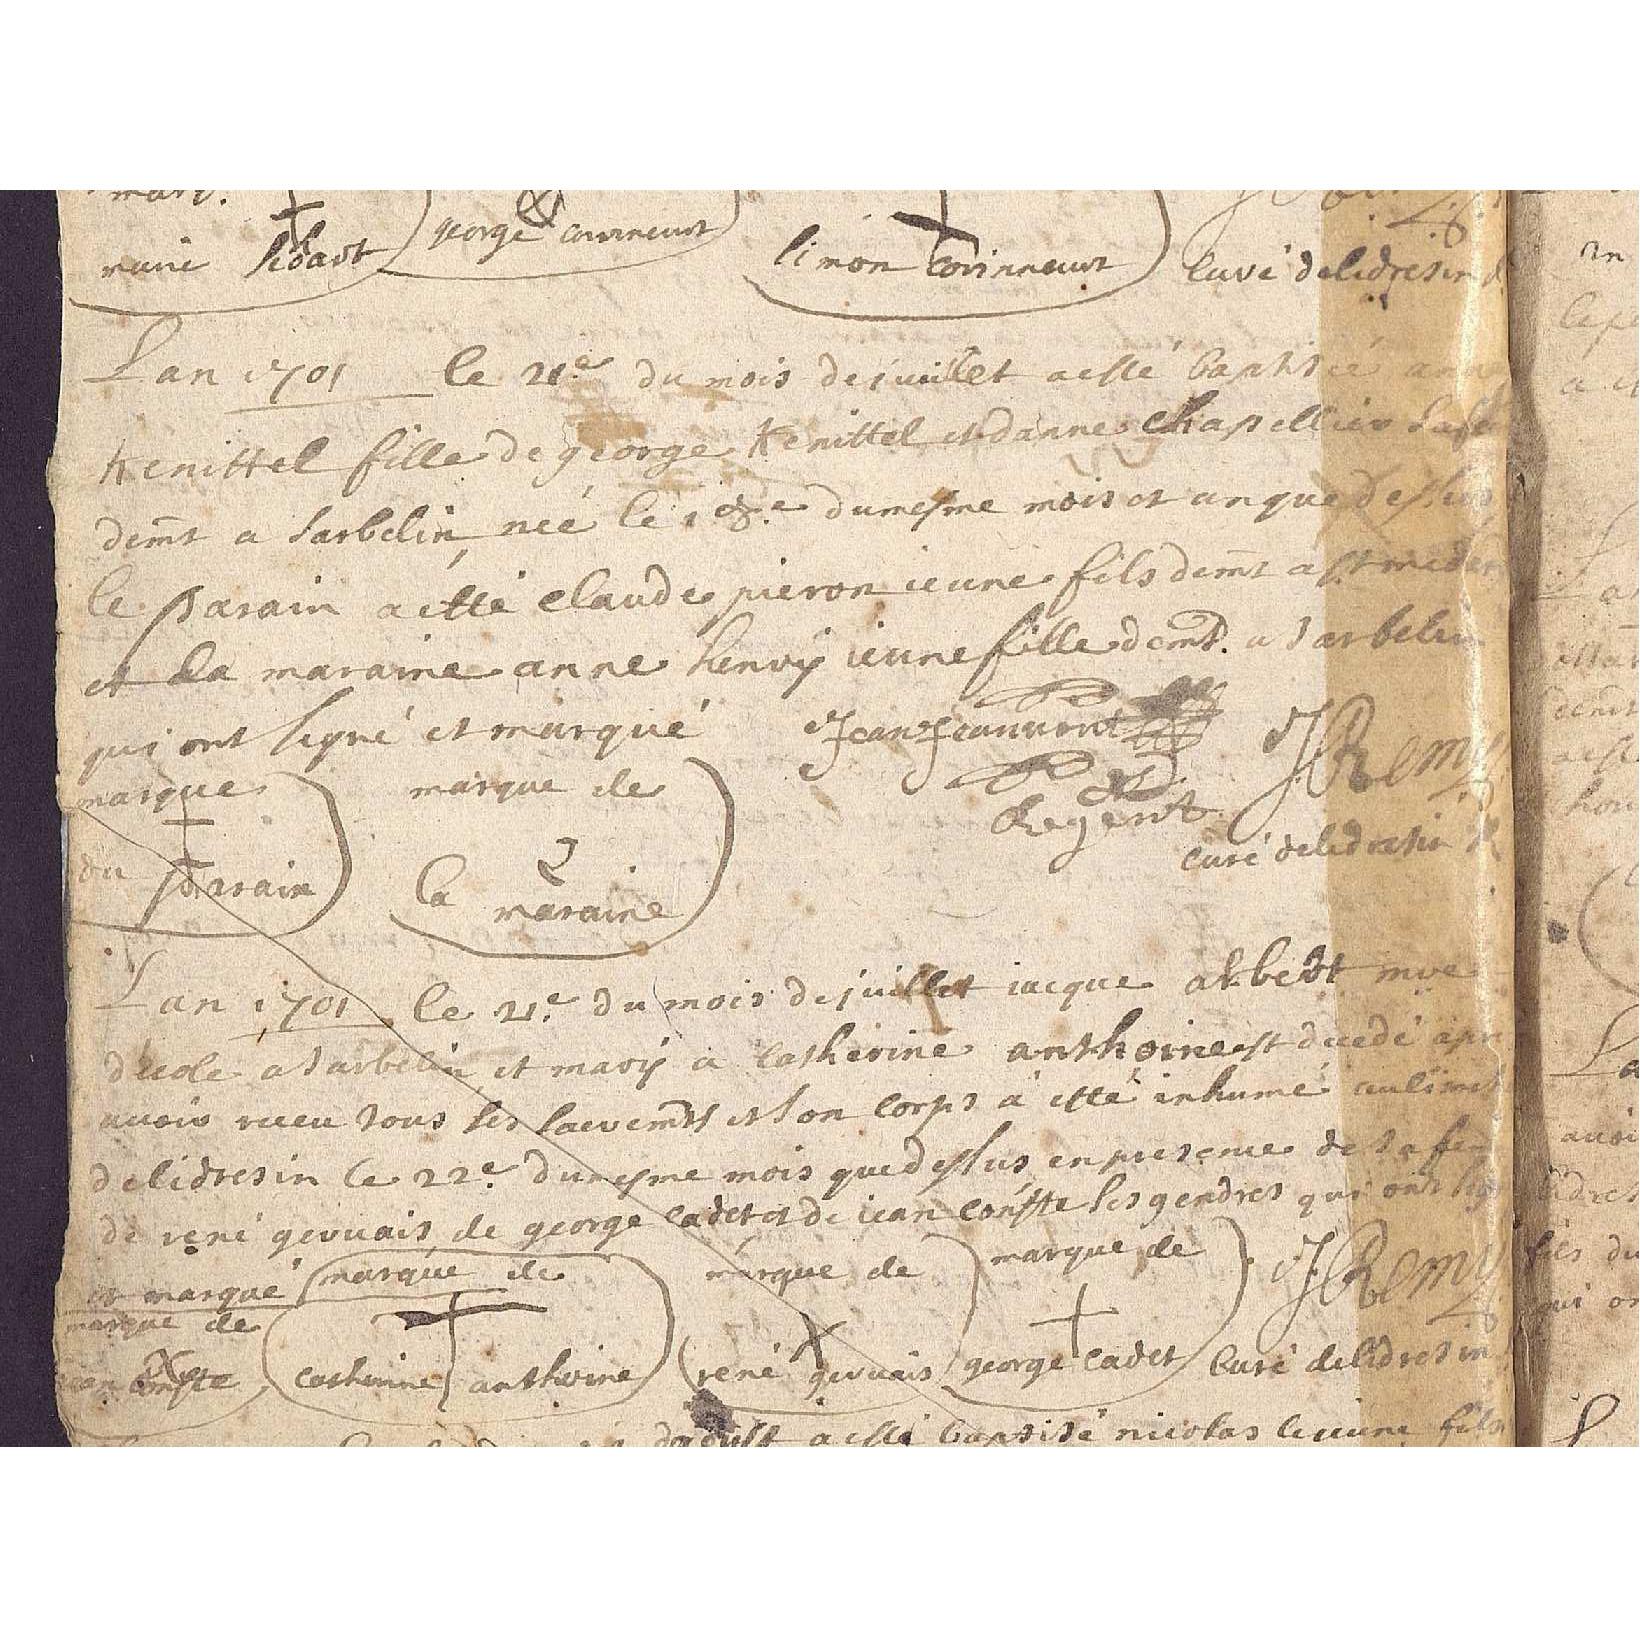 marq.
marie hibart george corinneur simon Corinneur Curé delidresin
Lan 1701 le 21e du mois de juillet a esté baptisée anne
Kenittel fille de george Kenittel et danne Chapellier
demt a sarbelin née le 18e du mesme mois et an que dessus
le parain a etté claude pieron ieune fils demt a
et la maraine anne henrÿ ieune fille demt. a sarbelin
qui ont signé et marqué Jean Jeanmont J Remy
marque marque de Regent
du parain la maraine curé delidresin
Lan 1701 le 21e du mois de juillet iacque albert
décole a sarbelin et marÿ a Catherine anthoine est decedé
auoir receu tous ses sacremts et son corps a etté inhumé
delidresin le 22e du mesme mois que dessus en presence de sa
de rené geruais de george cadet et de iean Conste ses gendres qui ont
et marqué marque de marque de marque de J Remy
marque de
Conste catherine anthoine rené geruais george cadet Curé delidresin
daoust a esté baptisé nicolas fils